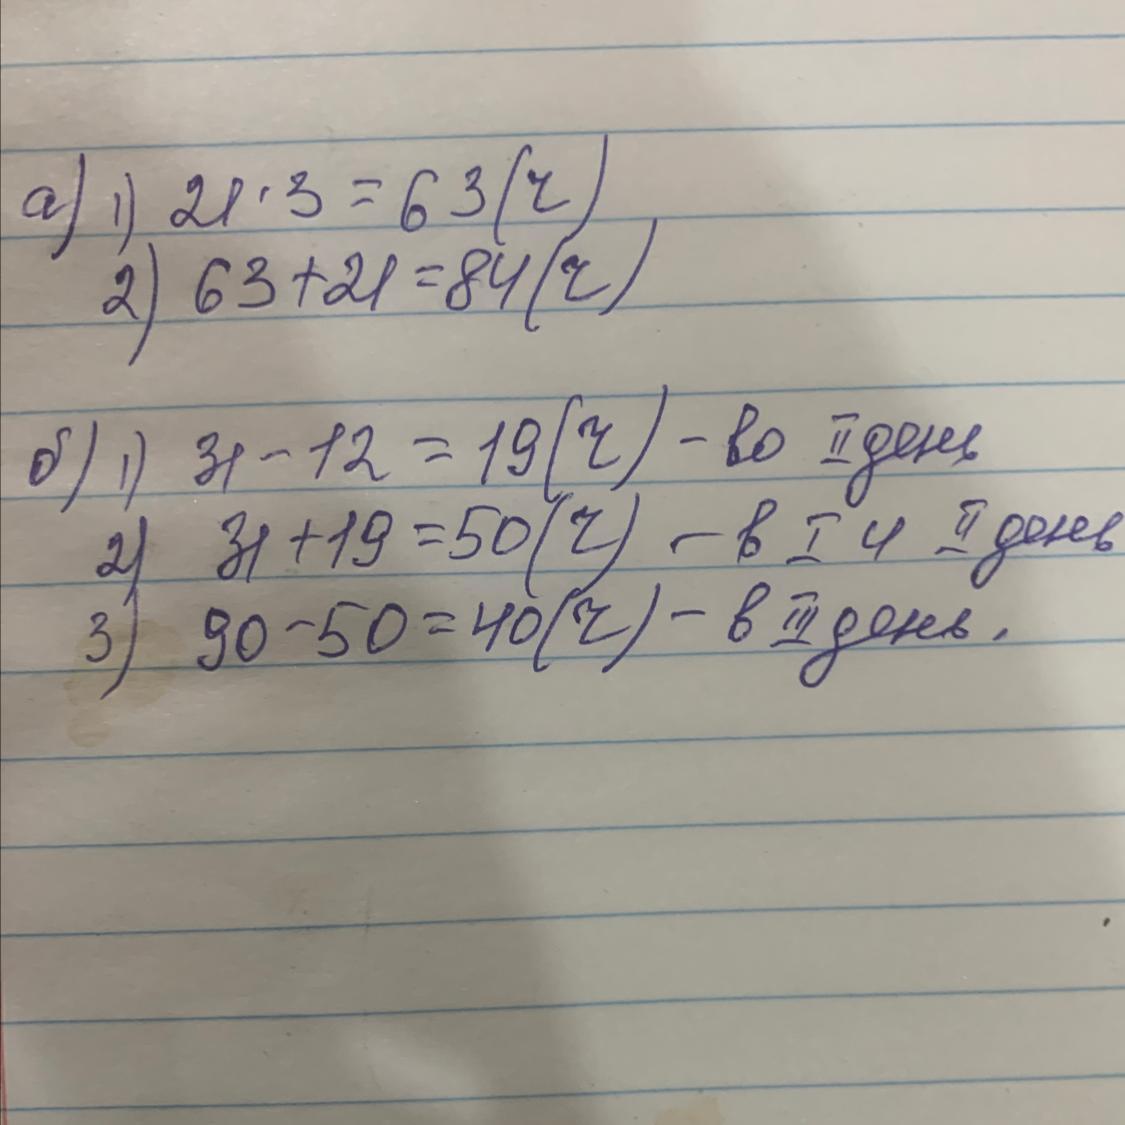 а) 1) 21·3=63(ч)
2) 63+21=84(ч)
б) 1) 31-12=19(ч) - во II день
2) 31+19=50(ч) - в I и II день
3) 90-50=40(ч) - в III день.